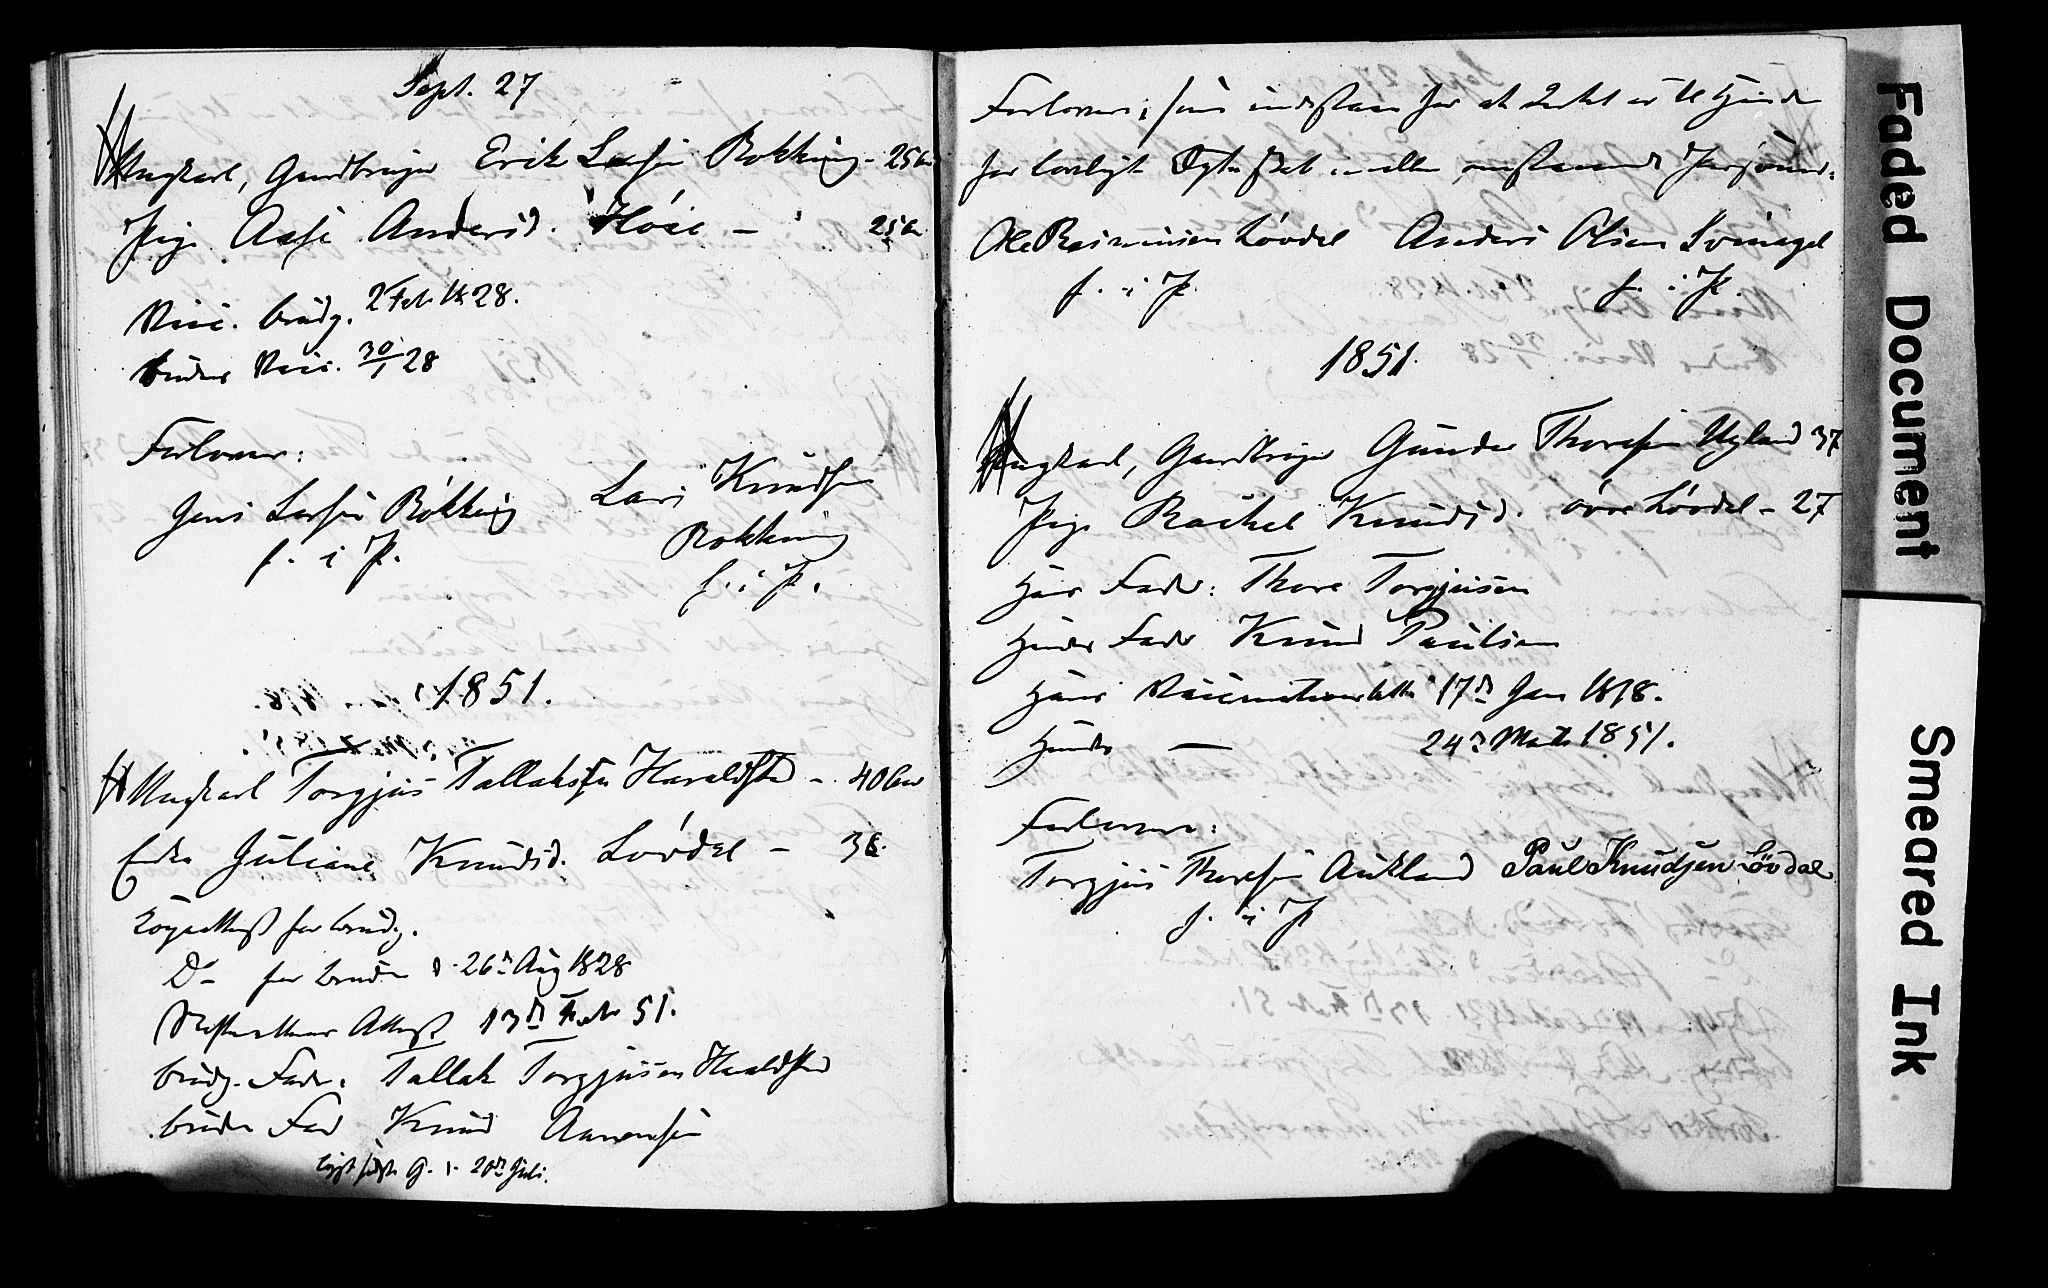 Sept. 27
Ungkarl, Gaardbruger Erik Larsen Rokking - 25
Pige Aase Andersd. Høie - 25
Vacc. brudg. 2 Feb 1828.
bruden Vacc. 30/1 28
Forlovere:
Jens Larsen Rokking Lars Knudsen
f. i P. Rokking
f. i P.
1851.
Ungkarl Torgjus Tallaksen Haraldstad - 40
Enke Juliane Knudsd. Løvdal - 36.
Koppeattest for brudg.
Do for bruden d. 26de Aug 1828
Attest 13de Feb 51.
brudg. Fader: Tallak Torgjusen Haraldstad
bruden Fad Knud Aanensen
lyst første G. d. 20de Juli.
Forlovere, som indestaae for at Intet er til Hinder
for lovligt Ægteskab mellem Personer.
Ole Rasmusen Løvdal Anders Olsen Svinagel
f. i P. f. i P.
1851.
Ungkarl, Gaardbruger Gunder Thoresen Ugland 37
Pige Rachel Knudsd. øvre Løvdal - 27
Hans Fader: Thore Torgjusen
Hendes Fader Knud Paulsen
Hans Vaccinationsattest 17de Jan 1818.
Hendes — 24de Marts 1851.
Forlovere:
Torgjus Thoresen Aukland Paul Knudsen Løvdal
f. i P
Faded Document
Smeared Ink